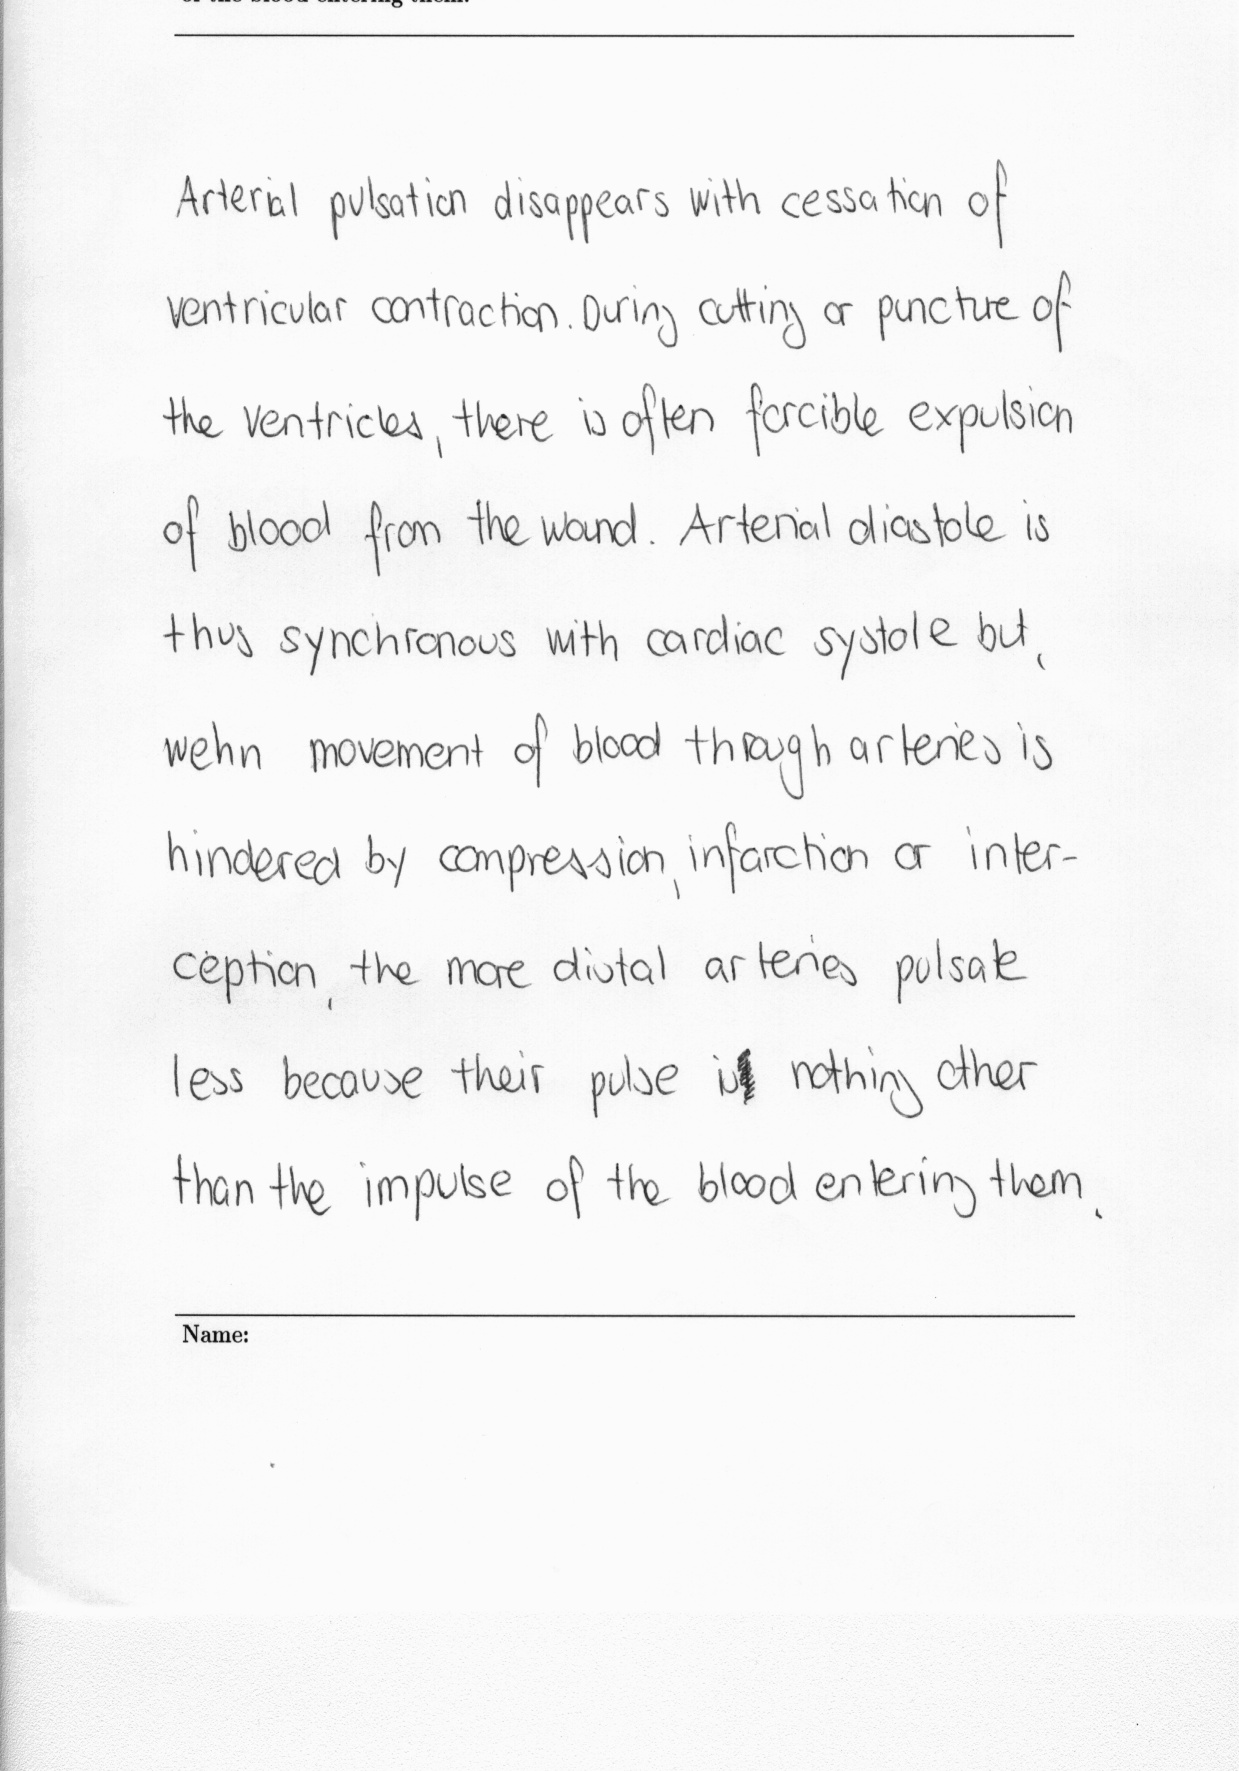 of the blood entering them.
Arterial pulsation disappears with cessation of
ventricular contraction. During cutting or puncture of
the ventricles, there is often forcible expulsion
of blood from the wound. Arterial diastole is
thus synchronous with cardiac systole but,
wehn movement of blood through arteries is
hindered by compression, infarction or inter-
ception, the more distal arteries pulsate
less because their pulse is nothing other
than the impulse of the blood entering them.
Name: